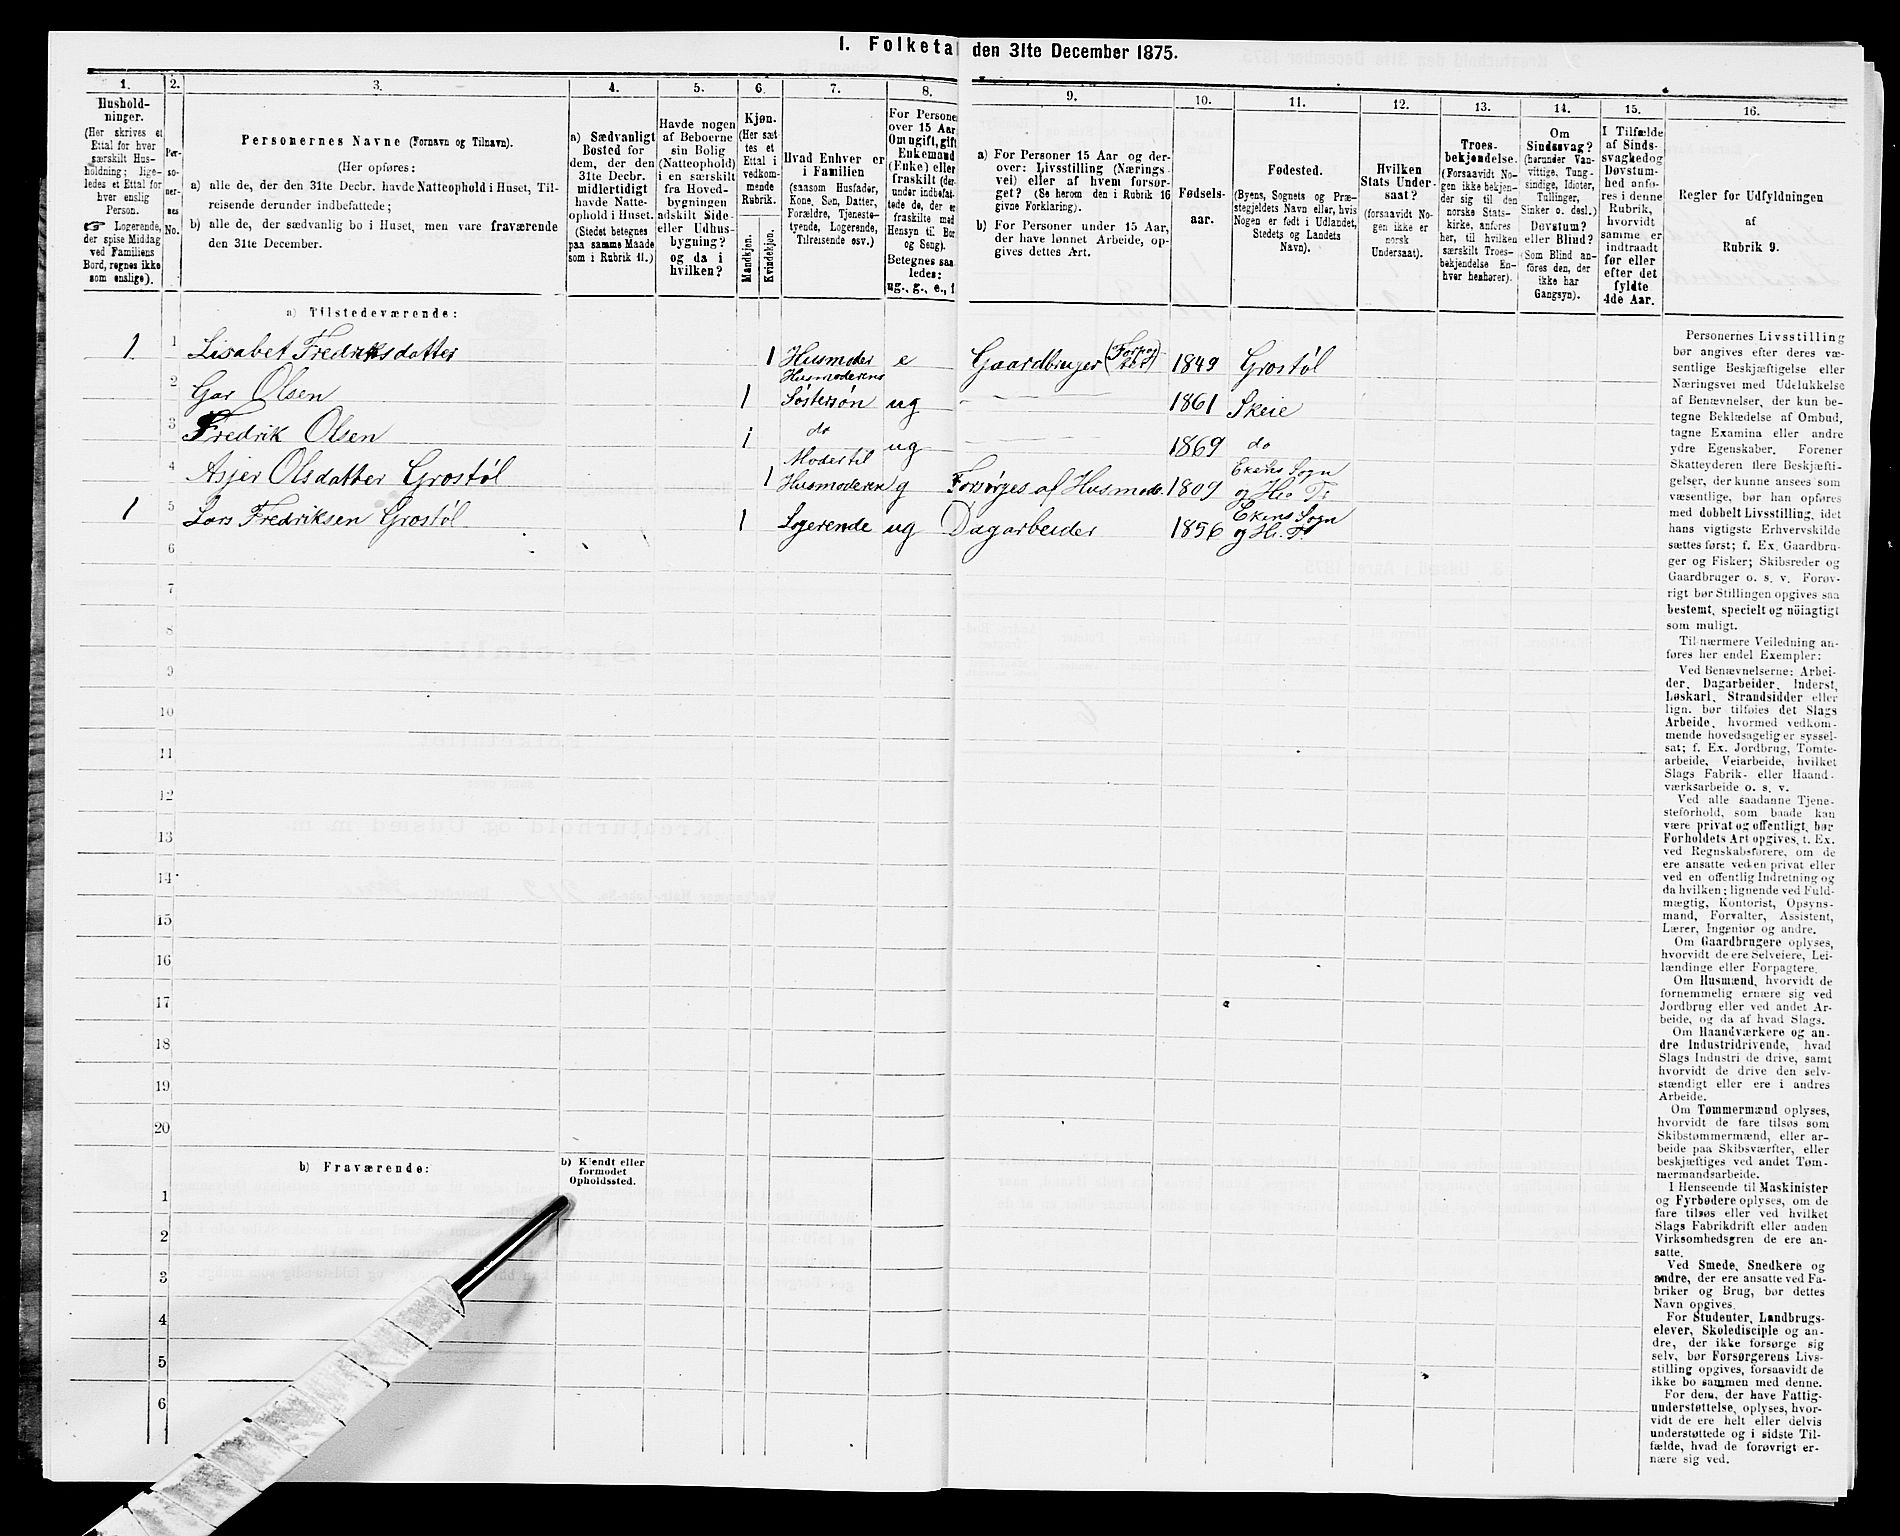 I. Folketal den 31te December 1875.
1.
2.
3.
4.
5.
6.
7.
8.
9.
10.
11.
12.
13.
14.
15.
16.
Hushold-
ninger.
(Her skrives et
Ettal for hver
særskilt Hus-
holdning; lige-
ledes et Ettal for
hver enslig
Person.
☞ Logerende,
der spise Middag
ved Familiens
Bord, regnes ikke
som enslige).
Per-
so-
ner-
nes
No.
Personernes Navne (Fornavn og Tilnavn).
(Her opføres:
a) alle de, der den 31te Decbr. havde Natteophold i Huset, Til-
reisende derunder indbefattede;
b) alle de, der sædvanlig bo i Huset, men vare fraværende
den 31te December.
a) Sædvanligt
Bosted for
dem, der den
31te Decbr.
midlertidigt
havde Natte-
ophold i Huset.
(Stedet betegnes
paa samme Maade
som i Rubrik 11.)
Havde nogen
af Beboerne
sin Bolig
(Natteophold)
i en særskilt
fra Hoved-
bygningen
adskilt Side-
eller Udhus-
bygning?
og da i
hvilken?
Kjøn.
(Her sæt
tes et
Ettal i
vedkom-
mende
Rubrik.
Mandkjøn.
Kvindekjøn.
Hvad Enhver er
i Familien
(saasom Husfader,
Kone, Søn, Datter,
Forældre, Tjeneste-
tyende, Logerende,
Tilreisende osv.)
For Persone
over 15 Aar
Om ugift, gift
Enkemand
(Enke) eller
fraskilt (der-
under indbefat-
tede de, der er
fraskilte med
Hensyn til Bor
og Seng).
Betegnes saa
ledes:
ug., g., e., f.
a) For Personer 15 Aar og der-
over: Livsstilling (Nærings-
vei) eller af hvem forsør-
get? (Se herom den i Rubrik 16
givne Forklaring).
b) For Personer under 15 Aar,
der have lønnet Arbeide, op-
gives dettes Art.
Fødsels-
aar.
Fødested.
(Byens, Sognets og Præ-
stegjeldets Navn eller, hvis
Nogen er født i Udlandet,
Stedets og Landets
Navn).
Hvilken
Stats Under-
saat?
(forsaavidt No-
gen ikke er
norsk
Undersaat).
Troes-
bekjendelse.
(Forsaavidt No-
gen ikke bekjen-
der sig til den
norske Stats-
kirke, anføres
her, til hvilken
særskilt Troes-
bekjendelse En-
hver henhører).
Om
Sindssvag?
(herunder Van-
vittige, Tung-
sindige, Idioter,
Tullinger,
Sinker o. desl.)
Døvstum?
eller Blind?
(Som Blind an-
føres den, der
ikke har
Gangsyn).
I Tilfælde
af Sinds-
svaghedog
Døvstum-
hed anfø-
res i denne
Rubrik,
hvorvidt
samme er
indtraadt
før eller
efter det
fyldte
4de Aar.
Regler for Udfyldningen
af
Rubrik 9.
a) Tilstedeværende:
1 1 Lisabet Fredriksdatter 1 Husmoder e Gaardbruger (Forpagter) 1849 Grostøl
2 Gar Olsen 1 Husmoderens Søstersøn ug 1861 Skeie
3 Fredrik Olsen 1 do ug 1869 do
4 Asjer Olsdatter Grostøl 1 Moder til Husmoderen g Forsørges af Husmode. 1809 Ekens Sogn og He. F.
1 5 Lars Fredriksen Grostøl 1 Logerende ug Dagarbeider 1856 Ekens Sogn og He. F.
6
7
8
9
10
11
12
13
14
15
16
17
18
19
20
b) Fraværende:
b) Kjendt eller
formodet
Opholdssted.
1
2
3
4
5
6
Personernes Livsstilling
bør angives efter deres væ-
sentlige Beskjæftigelse eller
Næringsvei med Udelukkelse
af Benævnelser, der kun be-
tegne Beklædelse af Ombud,
tagne Examina eller andre
ydre Egenskaber. Forener
Skatteyderen flere Beskjæfti-
gelser, der kunne ansees som
væsentlige, bør han opføres
med dobbelt Livsstilling, idet
hans vigtigste Erhvervskilde
sættes først; f. Ex. Gaardbru-
ger og Fisker; Skibsreder og
Gaardbruger o. s. v. Forøv-
rigt bør Stillingen opgives saa
bestemt, specielt og nøiagtigt
som muligt.
Til nærmere Veiledning an-
føres her endel Exempler:
Ved Benævnelserne: Arbei-
der, Dagarbeider, Inderst,
Løskarl, Strandsidder eller
lign. bør tilføies det Slags
Arbeide, hvormed vedkom-
mende hovedsagelig er syssel-
sat; f. Ex. Jordbrug, Tomte-
arbeide, Veiarbeide, hvilket
Slags Fabrik- eller Haand-
værksarbeide o. s. v.
Ved alle saadanne Tjene-
steforhold, som baade kan
være privat og offentligt, bør
Forholdets Art opgives, t. Ex.
ved Regnskabsførere, om de
ere ansatte ved en privat eller
ved en offentlig Indretning og
da hvilken; lignende ved Fuld-
mægtig, Kontorist, Opsyns-
mand, Forvalter, Assistent,
Lærer, Ingeniør og andre.
Om Gaardbrugere oplyses,
hvorvidt de ere Selveiere, Lei-
lændinge eller Forpagtere.
Om Husmænd, hvorvidt de
fornemmelig ernære sig ved
Jordbrug eller ved andet Ar-
beide, og da af hvad Slags.
Om Haandværkere og an-
dre Industridrivende, hvad
Slags Industri de drive, samt
hvorvidt de drive den selv-
stændigt eller ere i andres
Arbeide.
Om Tømmermænd oplyses,
hvorvidt de fare tilsøs som
Skibstømmermænd, eller ar-
beide paa Skibsværfter, eller
beskjæftiges ved andet Tøm-
mermandsarbeide.
I Henseende til Maskinister
og Fyrbødere oplyses, om de
fare tilsøs eller ved hvilket
Slags Fabrikdrift eller anden
Virksomhedsgren de ere an-
satte.
Ved Smede, Snedkere og
andre, der ere ansatte ved Fa-
briker og Brug, bør dettes
Navn opgives.
For Studenter, Landbrugs-
elever, Skoledisciple og an-
dre, der ikke forsørge sig
selv, bør Forsørgerens Livs-
stilling opgives, forsaavidt de
ikke bo sammen med denne.
For dem, der have Fattig-
understøttelse, oplyses, hvor-
vidt de ere helt eller delvis
understøttede og i sidste Til-
fælde, hvad de forøvrigt er-
nære sig ved.